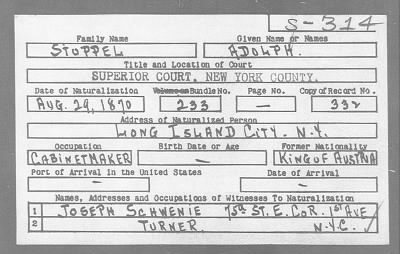 S-314
Family Name Given Name or Names
STUPPEL ADOLPH.
Title and Location of Court
SUPERIOR COURT, NEW YORK COUNTY.
Date of Naturalization Volume or Bundle No. Page No. Copy of Record No.
AUG. 29, 1870 233 — 332
Address of Naturalized Person
LONG ISLAND CITY. N.Y.
Occupation Birth Date or Age Former Nationality
CABINETMAKER — KING OF AUSTRIA
Port of Arrival in the United States Date of Arrival
— —
Names, Addresses and Occupations of Witnesses To Naturalization
1 JOSEPH SCHWENIE 75th ST. E. COR. 1st AVE
2 TURNER. N.Y.C.